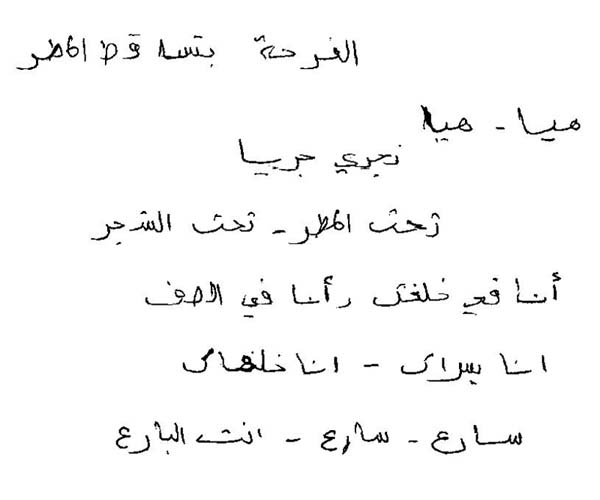 الفرحة بتساقط المطر
هيا - هيا
نجري جريا
تحت المطر - تحت الشجر
أنا في خلفك رأنا في الصف
انا يسراك - انا خلفاك
سارع - سارع - انت البارع